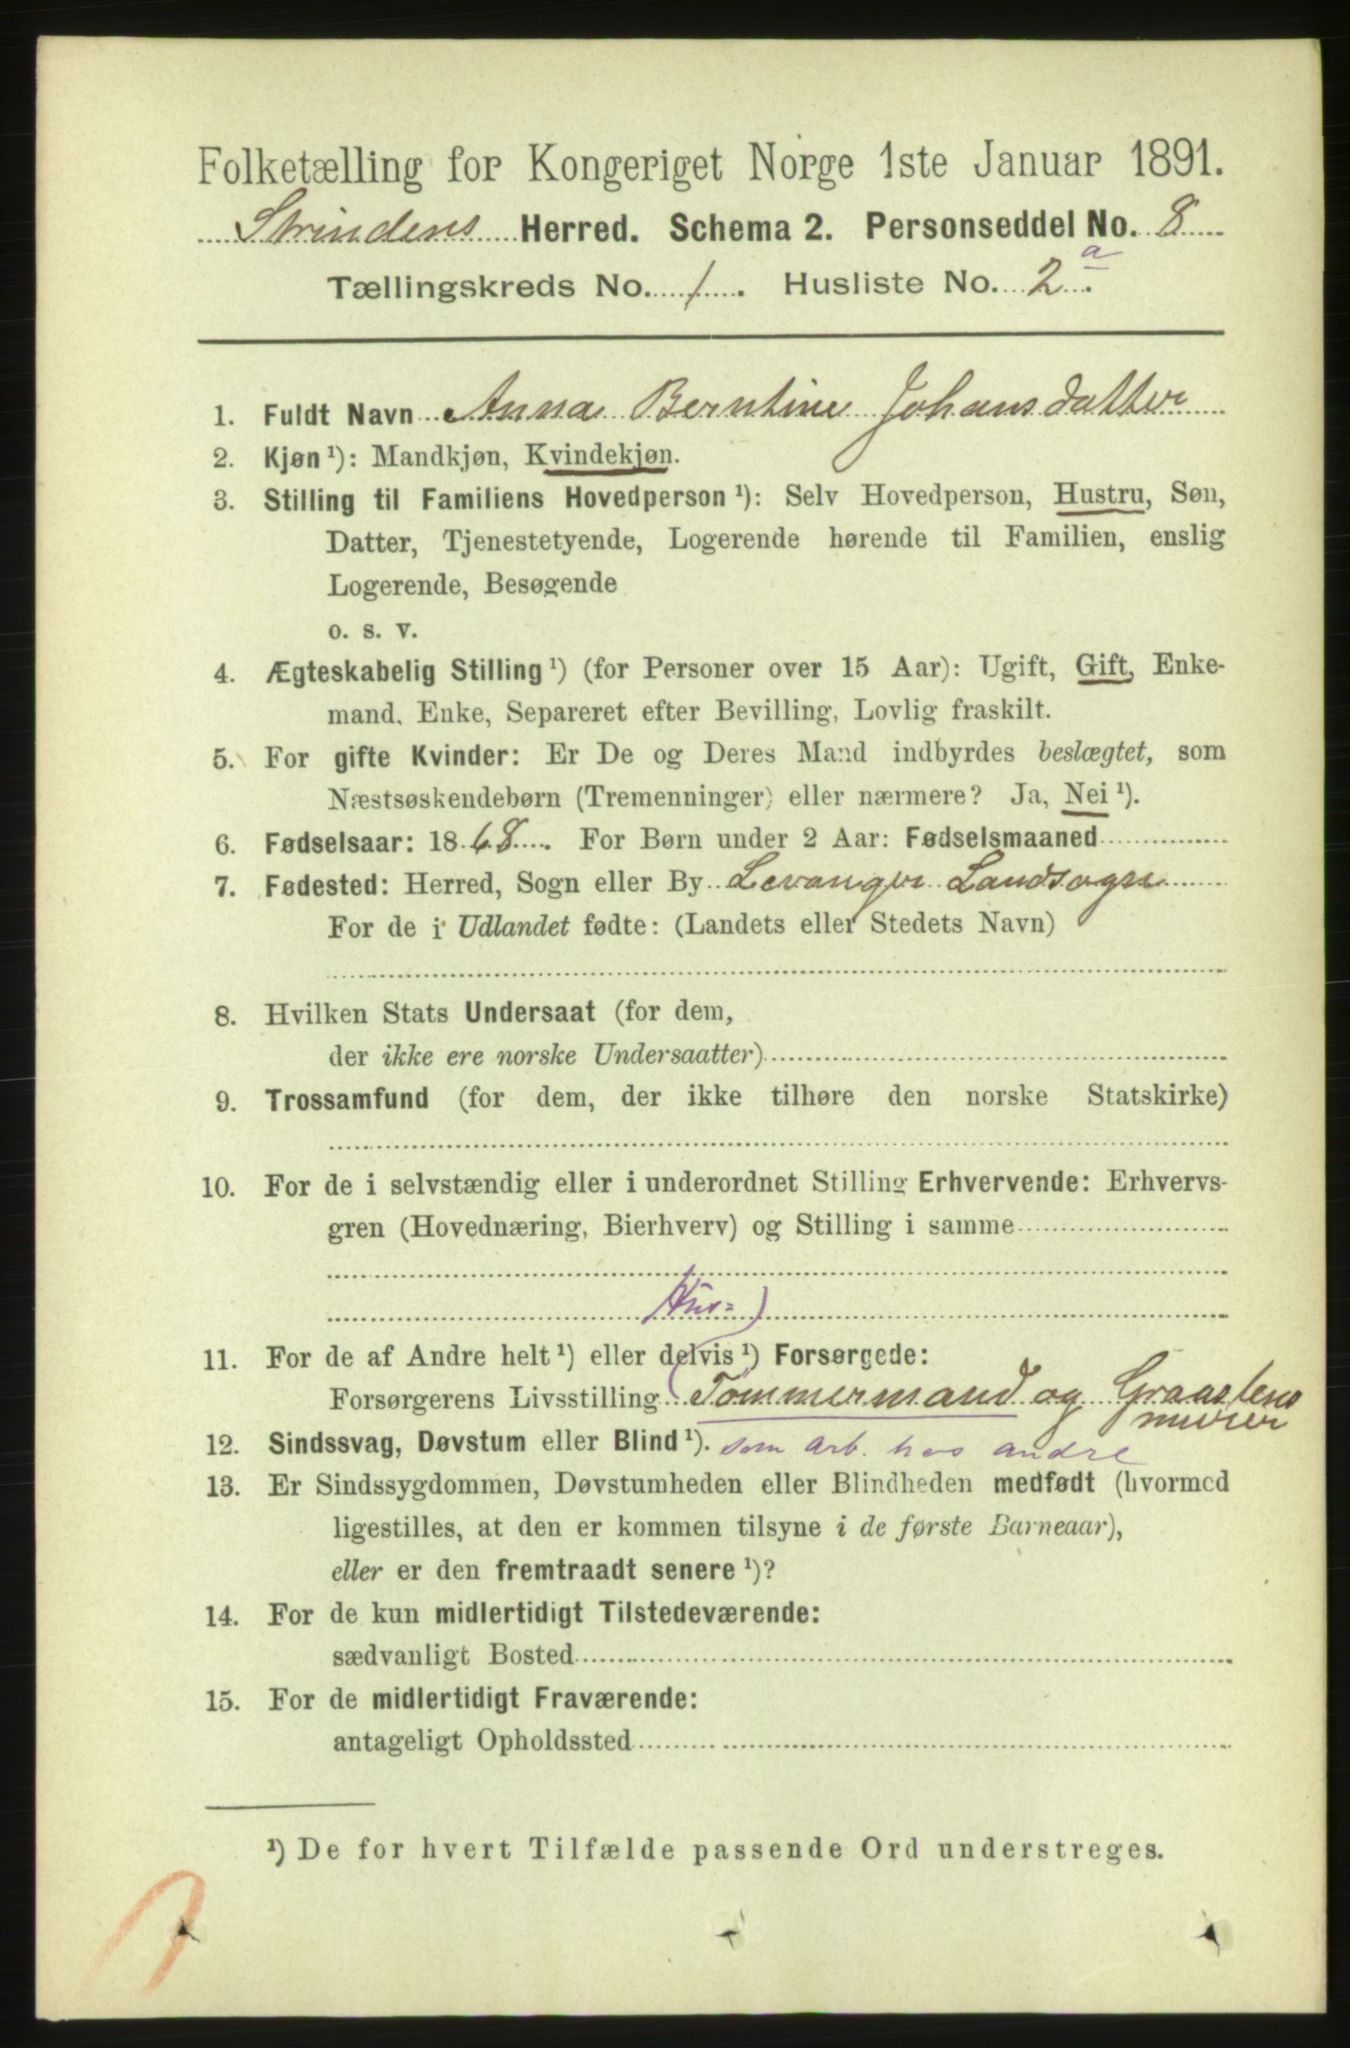 Folketælling for Kongeriget Norge 1ste Januar 1891.
Strindens Herred. Schema 2. Personseddel No. 8
Tællingskreds No. 1. Husliste No. 2a.
1. Fuldt Navn Anna Berntine Johansdatter
2. Kjøn ¹): Mandkjøn, Kvindekjøn.
3. Stilling til Familiens Hovedperson ¹): Selv Hovedperson, Hustru, Søn,
Datter, Tjenestetyende, Logerende hørende til Familien, enslig
Logerende, Besøgende
o. s. v.
4. Ægteskabelig Stilling ¹) (for Personer over 15 Aar): Ugift, Gift, Enke-
mand, Enke, Separeret efter Bevilling, Lovlig fraskilt.
5. For gifte Kvinder: Er De og Deres Mand indbyrdes beslægtet, som
Næstsøskendebørn (Tremenninger) eller nærmere? Ja, Nei ¹).
6. Fødselsaar: 1868. For Børn under 2 Aar: Fødselsmaaned
7. Fødested: Herred, Sogn eller By Levanger Landsogn
For de i Udlandet fødte: (Landets eller Stedets Navn)
8. Hvilken Stats Undersaat (for dem,
der ikke ere norske Undersaatter)
9. Trossamfund (for dem, der ikke tilhøre den norske Statskirke)
10. For de i selvstændig eller i underordnet Stilling Erhvervende: Erhvervs-
gren (Hovednæring, Bierhverv) og Stilling i samme
11. For de af Andre helt ¹) eller delvis ¹) Forsørgede:
Forsørgerens Livsstilling (Tømmermand og Graastens
murer
12. Sindssvag, Døvstum eller Blind ¹). som arb. hos andre
13. Er Sindssygdommen, Døvstumheden eller Blindheden medfødt (hvormed
ligestilles, at den er kommen tilsyne i de første Barneaar),
eller er den fremtraadt senere ¹)?
14. For de kun midlertidigt Tilstedeværende:
sædvanligt Bosted
15. For de midlertidigt Fraværende:
antageligt Opholdssted
¹) De for hvert Tilfælde passende Ord understreges.